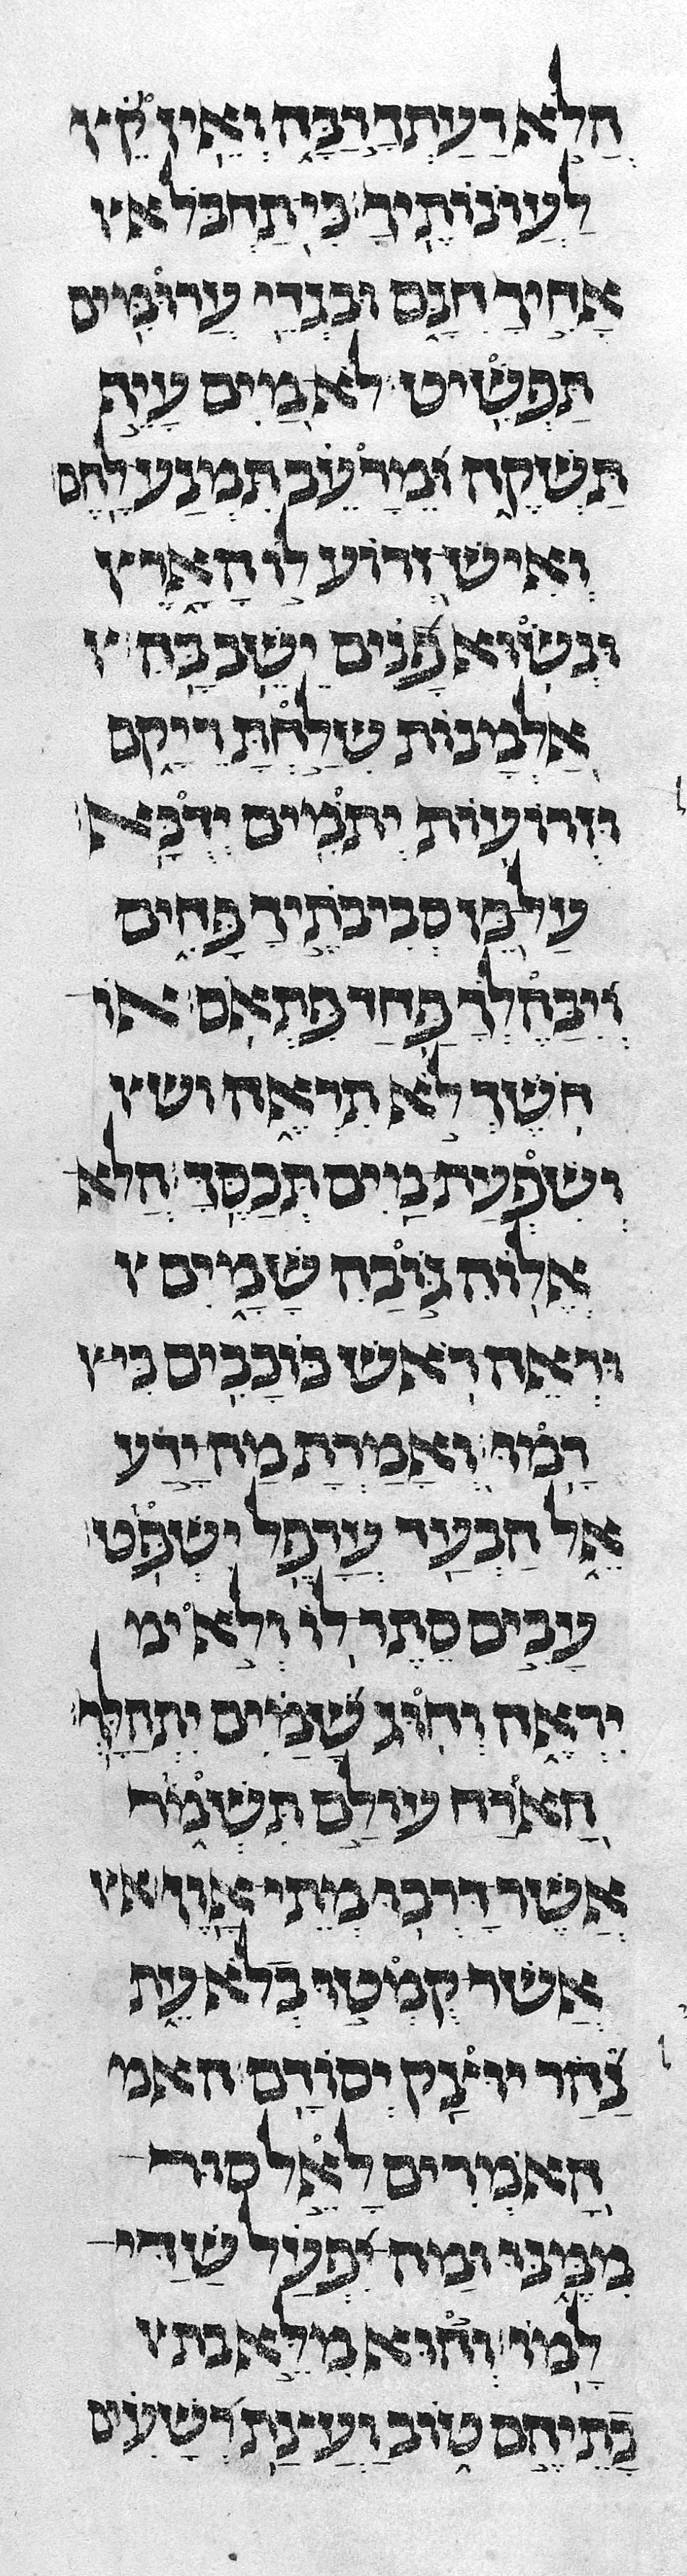 הֲלֹא רָעָתְךָ רַבָּה וְאֵין קֵץ
לַעֲוֺנֹתֶיךָ׃ כִּי תַחְבֹּל א
אַחֶיךָ חִנָּם וּבִגְדֵי עֲרוּמִּים
תַּפְשִׁיט׃ לֹא מַיִם עָיֵף
תַּשְׁקֶה וּמֵרָעֵב תִּמְנַע לָחֶם׃
וְאִישׁ זְרוֹעַ לוֹ הָאָרֶץ
וּנְשׂוּא פָנִים יֵשֶׁב בָּהּ
אַלְמָנוֹת שִׁלַּחְתָּ רֵיקָם
וּזְרֹעוֹת יְתֹמִים יְדֻכָּא׃
עַל כֵּן סְבִיבֹתֶיךָ פַחִים
וִיבַהֶלְךָ פַּחַד פִּתְאֹם׃ אוֹ
חֹשֶׁךְ לֹא תִרְאֶה וש
וְשִׁפְעַת מַיִם תְּכַסֶּךָּ׃ הֲלֹא
אֱלוֹהַּ גֹּבַהּ שָׁמָיִם
וּרְאֵה רֹאשׁ כּוֹכָבִים כִּי
רָמּוּ׃ וְאָמַרְתָּ מַה יָּדַע
אֵל הַבְעַד עֲרָפֶל יִשְׁפּוֹט׃
עָבִים סֵתֶר לוֹ וְלֹא י
יִרְאֶה וְחוּג שָׁמַיִם יִתְהַלָּךְ׃
הַאֹרַח עוֹלָם תִּשְׁמֹר
אֲשֶׁר דָּרְכוּ מְתֵי אָוֶן׃ א
אֲשֶׁר קֻמְּטוּ בְלֹא עֵת
נָהָר יוּצַק יְסוֹדָם׃ האמ
הָאֹמְרִים לָאֵל סוּר
מִמֶּנּוּ וּמַה יִּפְעַל שַׁדַּי
לָמוֹ׃ וְהוּא מִלֵּא בת
בָּתֵּיהֶם טוֹב וַעֲצַת רְשָׁעִים